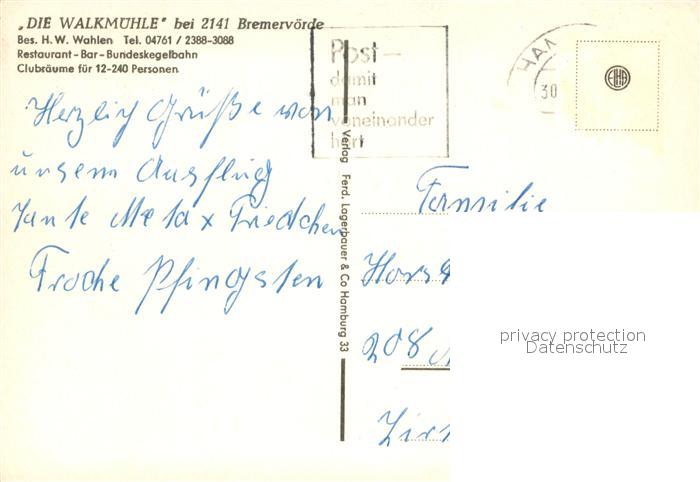 „DIE WALKMÜHLE" bei 2141 Bremervörde
Bes. H. W. Wahlen Tel. 04761 / 2388-3088
Restaurant-Bar-Bundeskegelbahn
Clubräume für 12-240 Personen
Herzlich Grüße von
unsem Ausflug
Tante Meta x Friedchen
Frohe Pfingsten
Post-
damit
man
voneinander
hört
HAM
30
Verlag Ferd. Lagerbauer & Co Hamburg 33
Familie
Horst
208
privacy protection
Datenschutz